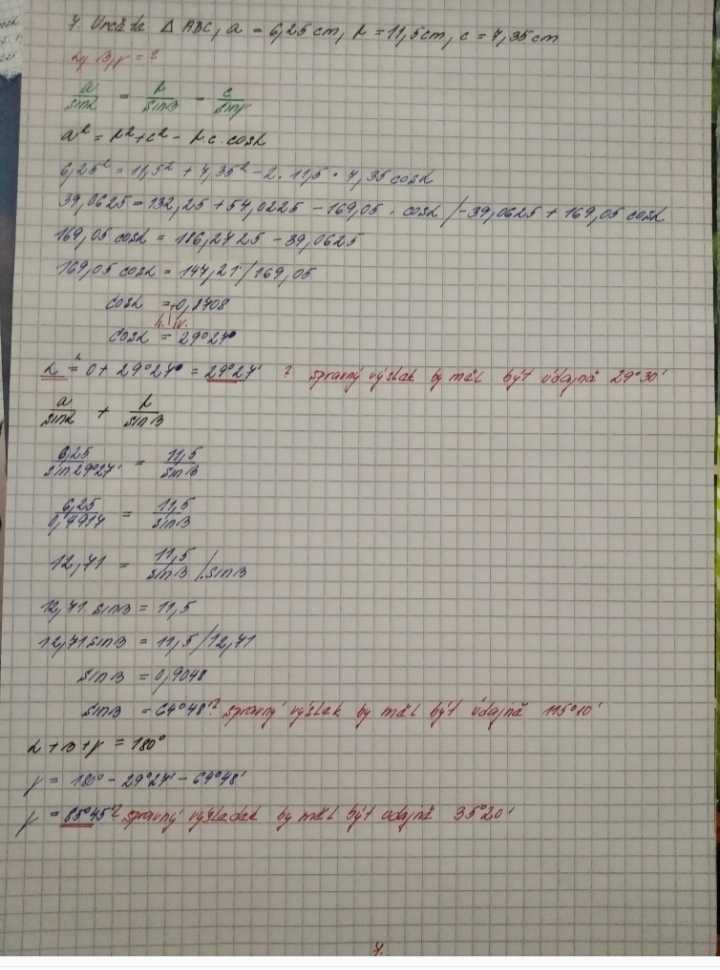 7. Určete △ ABC, a = 6,25 cm, b = 11,5 cm, c = 7,35 cm
α, β, γ = ?
a/sinα = b/sinβ = c/sinγ
a² = b² + c² - bc · cosα
6,25² = 11,5² + 7,35² - 2 · 11,5 · 7,35 cosα
39,0625 = 132,25 + 54,0225 - 169,05 · cosα /-39,0625 + 169,05 cosα
169,05 cosα = 186,2725 - 39,0625
169,05 cosα = 147,21 /169,05
cosα = 0,8708
cosα = 29°27'
α = 0 + 29°27' = 29°27' ? správný výsledek by měl být údajně 29°30'
a/sinα + b/sinβ
6,25/sin 29°27' = 11,5/sinβ
6,25/0,4917 = 11,5/sinβ
12,71 = 11,5/sinβ /·sinβ
12,71 · sinβ = 11,5
12,71 sinβ = 11,5 /12,71
sinβ = 0,9048
sinβ = 64°48' ? správný výsledek by měl být údajně 115°10'
α + β + γ = 180°
γ = 180° - 29°27' - 64°48'
γ = 85°45' ? správný výsledek by měl být údajně 35°20'
7.